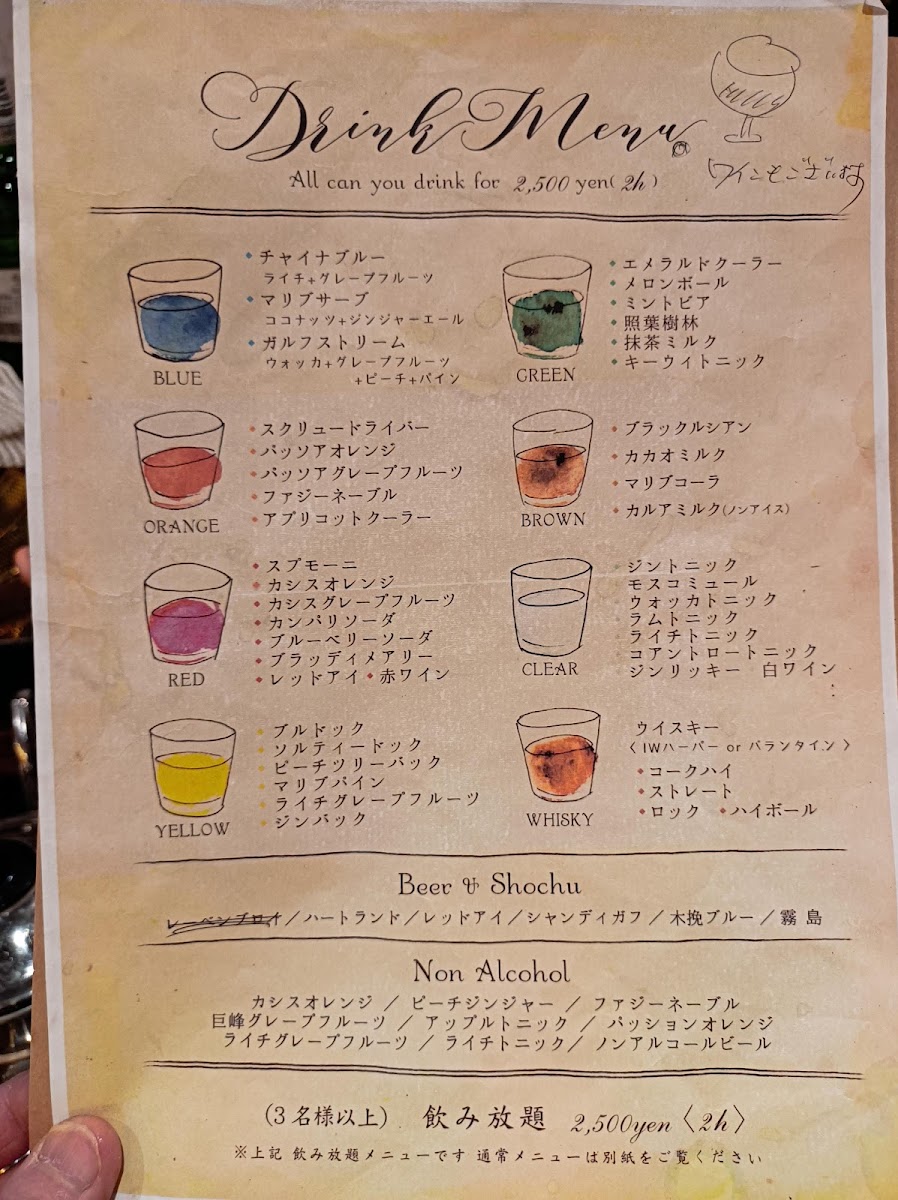 Drink Menu
All can you drink for 2,500 yen(2h)
ワインもございます
チャイナブルー
ライチ+グレープフルーツ
マリブサーブ
ココナッツ+ジンジャーエール
ガルフストリーム
ウォッカ+グレープフルーツ
+ピーチ+パイン
BLUE
エメラルドクーラー
メロンボール
ミントビア
照葉樹林
抹茶ミルク
キーウイトニック
GREEN
スクリュードライバー
パッソアオレンジ
パッソアグレープフルーツ
ファジーネーブル
アプリコットクーラー
ORANGE
ブラックルシアン
カカオミルク
マリブコーラ
カルアミルク(ノンアイス)
BROWN
スプモーニ
カシスオレンジ
カシスグレープフルーツ
カンパリソーダ
ブルーベリーソーダ
ブラッディメアリー
レッドアイ 赤ワイン
RED
ジントニック
モスコミュール
ウォッカトニック
ラムトニック
ライチトニック
コアントロートニック
ジンリッキー 白ワイン
CLEAR
ブルドック
ソルティードック
ピーチツリーバック
マリブパイン
ライチグレープフルーツ
ジンバック
YELLOW
ウイスキー
〈 IWハーパー or バランタイン 〉
コークハイ
ストレート
ロック ハイボール
WHISKY
Beer & Shochu
レーベンブロイ/ハートランド/レッドアイ/シャンディガフ/木挽ブルー/霧島
Non Alcohol
カシスオレンジ / ピーチジンジャー / ファジーネーブル
巨峰グレープフルーツ / アップルトニック / パッションオレンジ
ライチグレープフルーツ / ライチトニック/ ノンアルコールビール
(3名様以上) 飲み放題 2,500yen〈2h〉
※上記 飲み放題メニューです 通常メニューは別紙をご覧ください